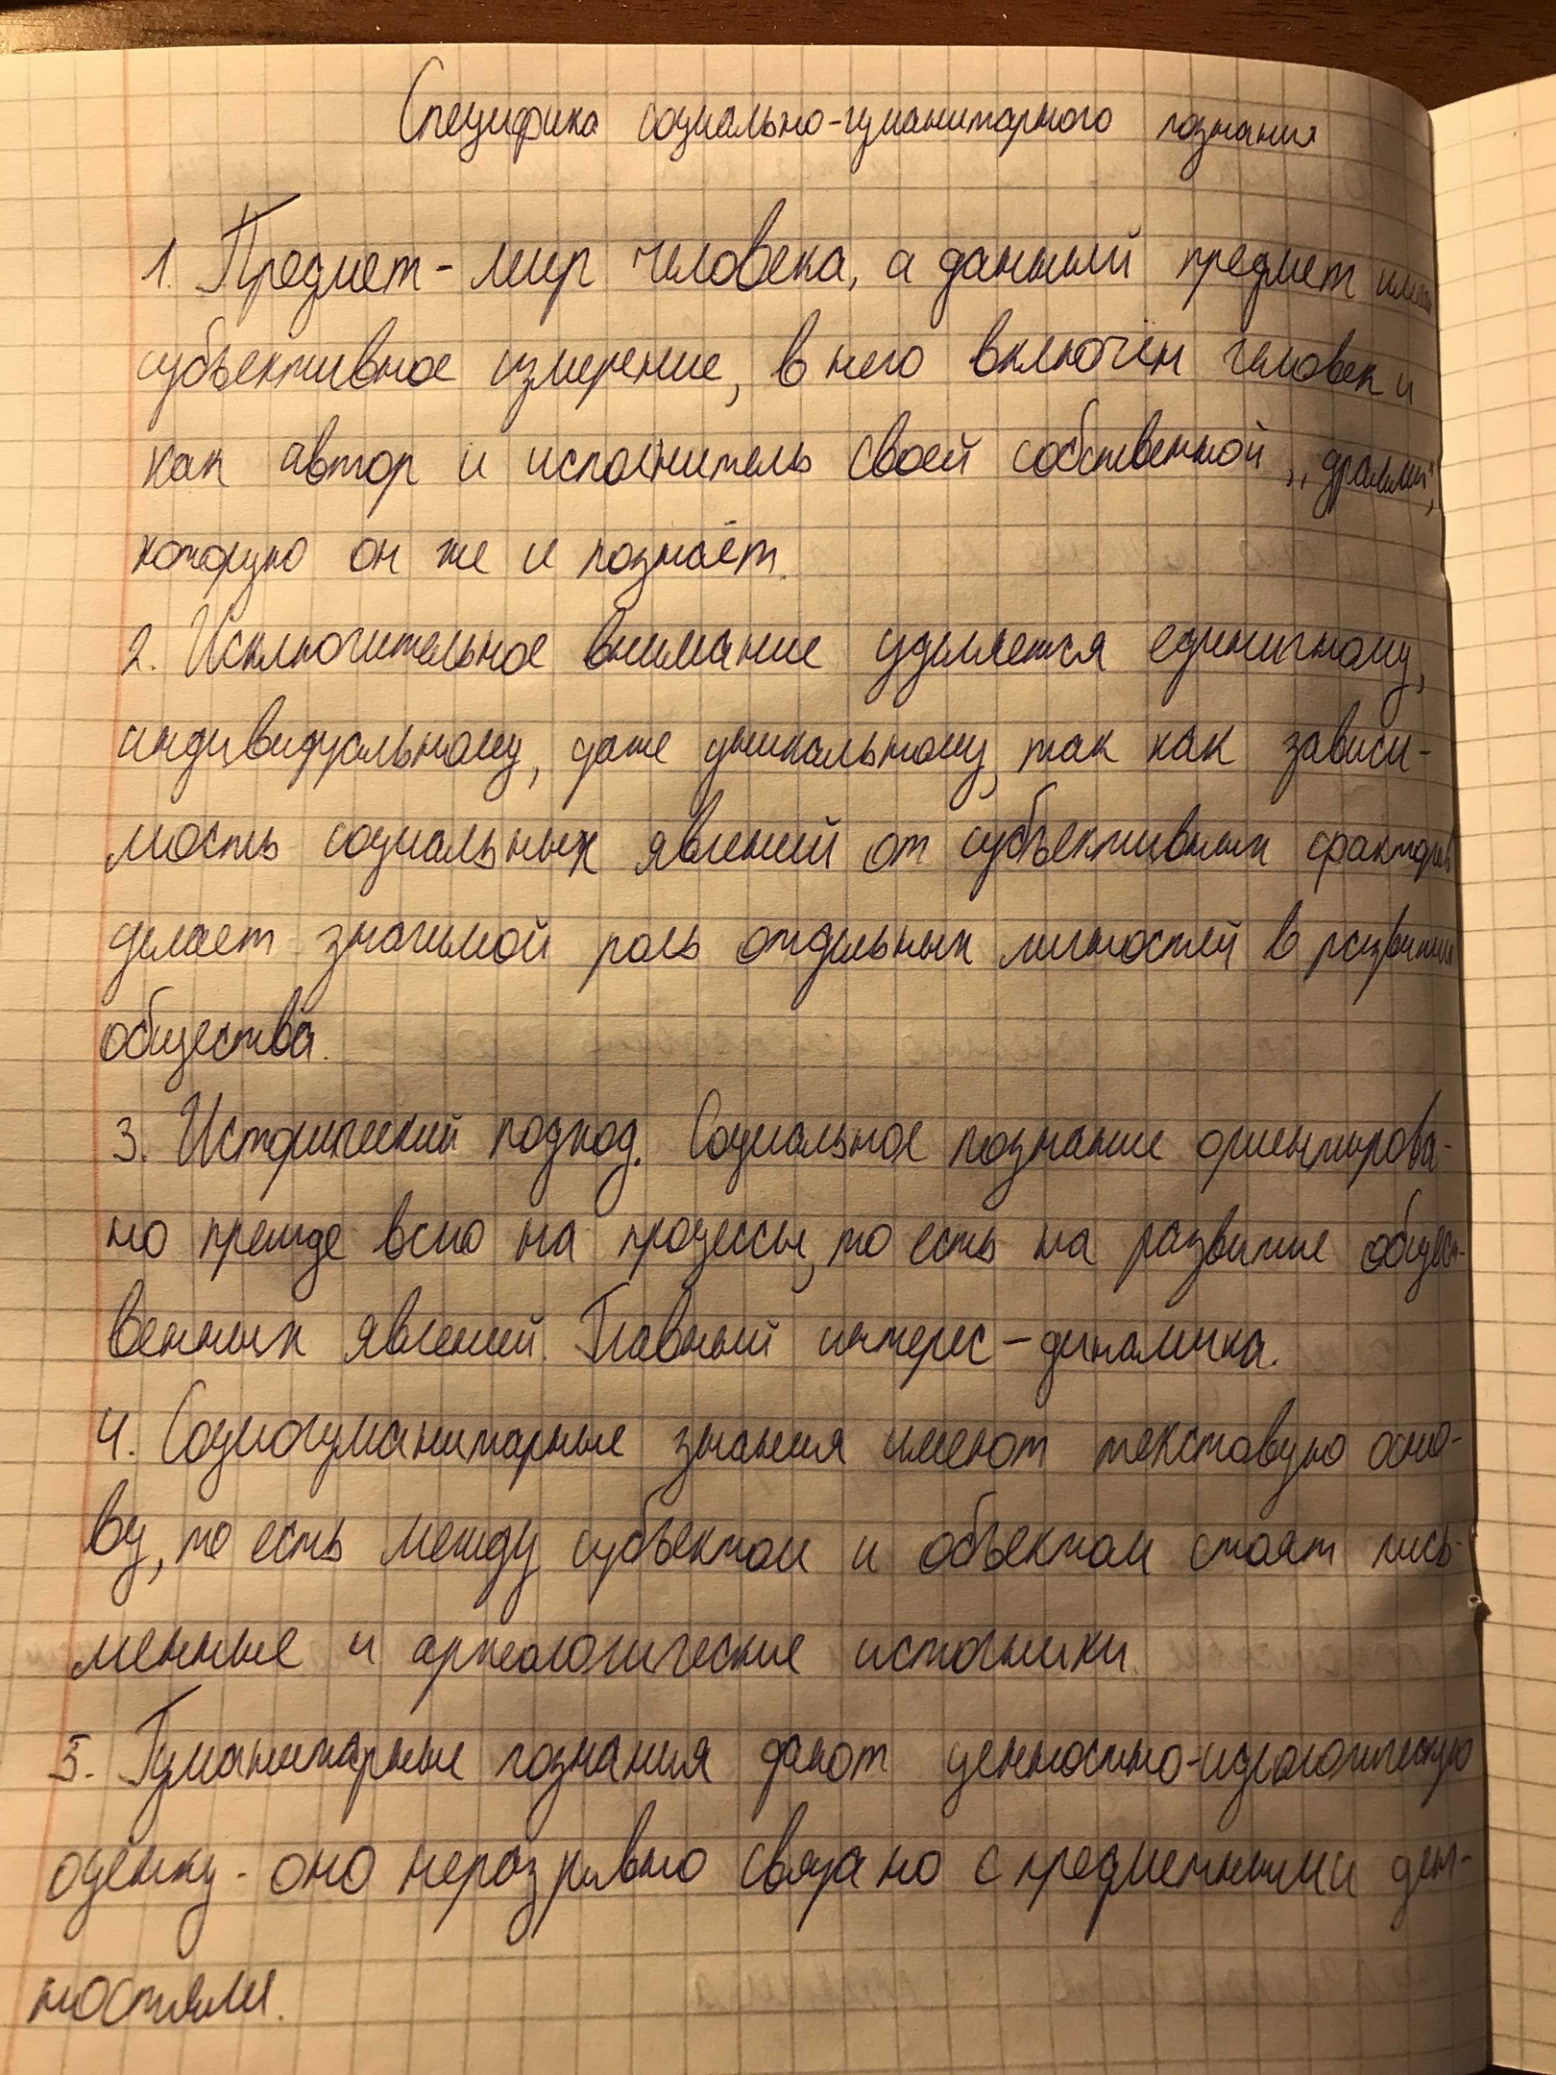 Специфика социально-гуманитарного познания
1. Предмет - мир человека, а данный предмет имеет
субъективное измерение, в него включён человек и
как автор и исполнитель своей собственной „драмы",
которую он же и познаёт.
2. Исключительное внимание уделяется единичному,
индивидуальному, даже уникальному, так как зависи-
мость социальных явлений от субъективных факторов
делает значимой роль отдельных личностей в развитии
общества.
3. Исторический подход. Социальное познание ориентирова-
но прежде всего на процессы, то есть на развитие общест-
венных явлений. Главный интерес - динамика.
4. Социогуманитарные знания имеют текстовую осно-
ву, то есть между субъектом и объектом стоят пись-
менные и археологические источники.
5. Гуманитарные познания дают ценностно-идеологическую
оценку - оно неразрывно связано с предметными
ностями.